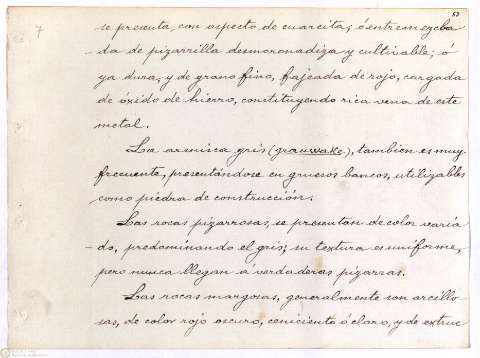 53
7
se presenta, con aspecto de cuarcita; ó entremezcla
-da de pizarrilla desmoronadiza y cultivable; ó
ya dura, y de grano fino, fajeada de rojo, cargada
de óxido de hierro, constituyendo rica vena de este
metal.
La arenisca gris (grauwake), tambien es muy
frecuente, presentándose en gruesos bancos, utilizables
como piedra de construcción.
Las rocas pizarrosas, se presentan de color varia
-do, predominando el gris; su textura es uniforme,
pero nunca llegan á verdaderas pizarras.
Las rocas margosas, generalmente son arcillo
sas, de color rojo oscuro, ceniciento ó claro, y de estruc